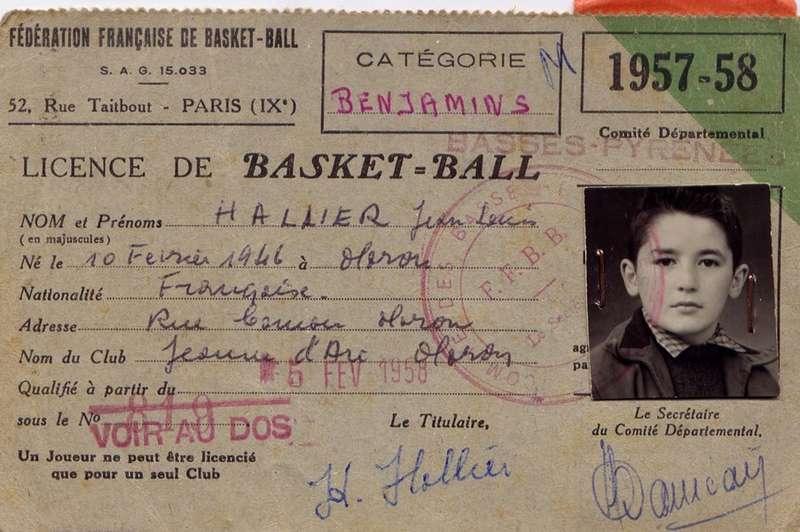 FÉDÉRATION FRANÇAISE DE BASKET-BALL
S. A. G. 15.033
52, Rue Taitbout - PARIS (IXᵉ)
CATÉGORIE M
BENJAMINS
1957-58
Comité Départemental
BASSES-PYRENÉES
LICENCE DE BASKET-BALL
NOM et Prénoms HALLIER Jean Louis
(en majuscules)
Né le 10 Février 1946 à Oloron
Nationalité Française.
Adresse Rue Oloron
Nom du Club Jeanne d'Arc Oloron
F.F.B.B.
Qualifié à partir du 5 FEV 1958
sous le Nº 819
VOIR AU DOS
Le Titulaire,
Le Secrétaire
du Comité Départemental,
Un Joueur ne peut être licencié
que pour un seul Club
H. Hallier